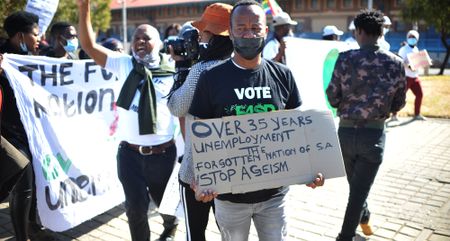 THE FO
Nation
Unem
VOTE
FASD
OVER 35 YEARS
UNEMPLOYMENT
THE
FORGOTTEN NATION OF S.A
STOP AGEISM